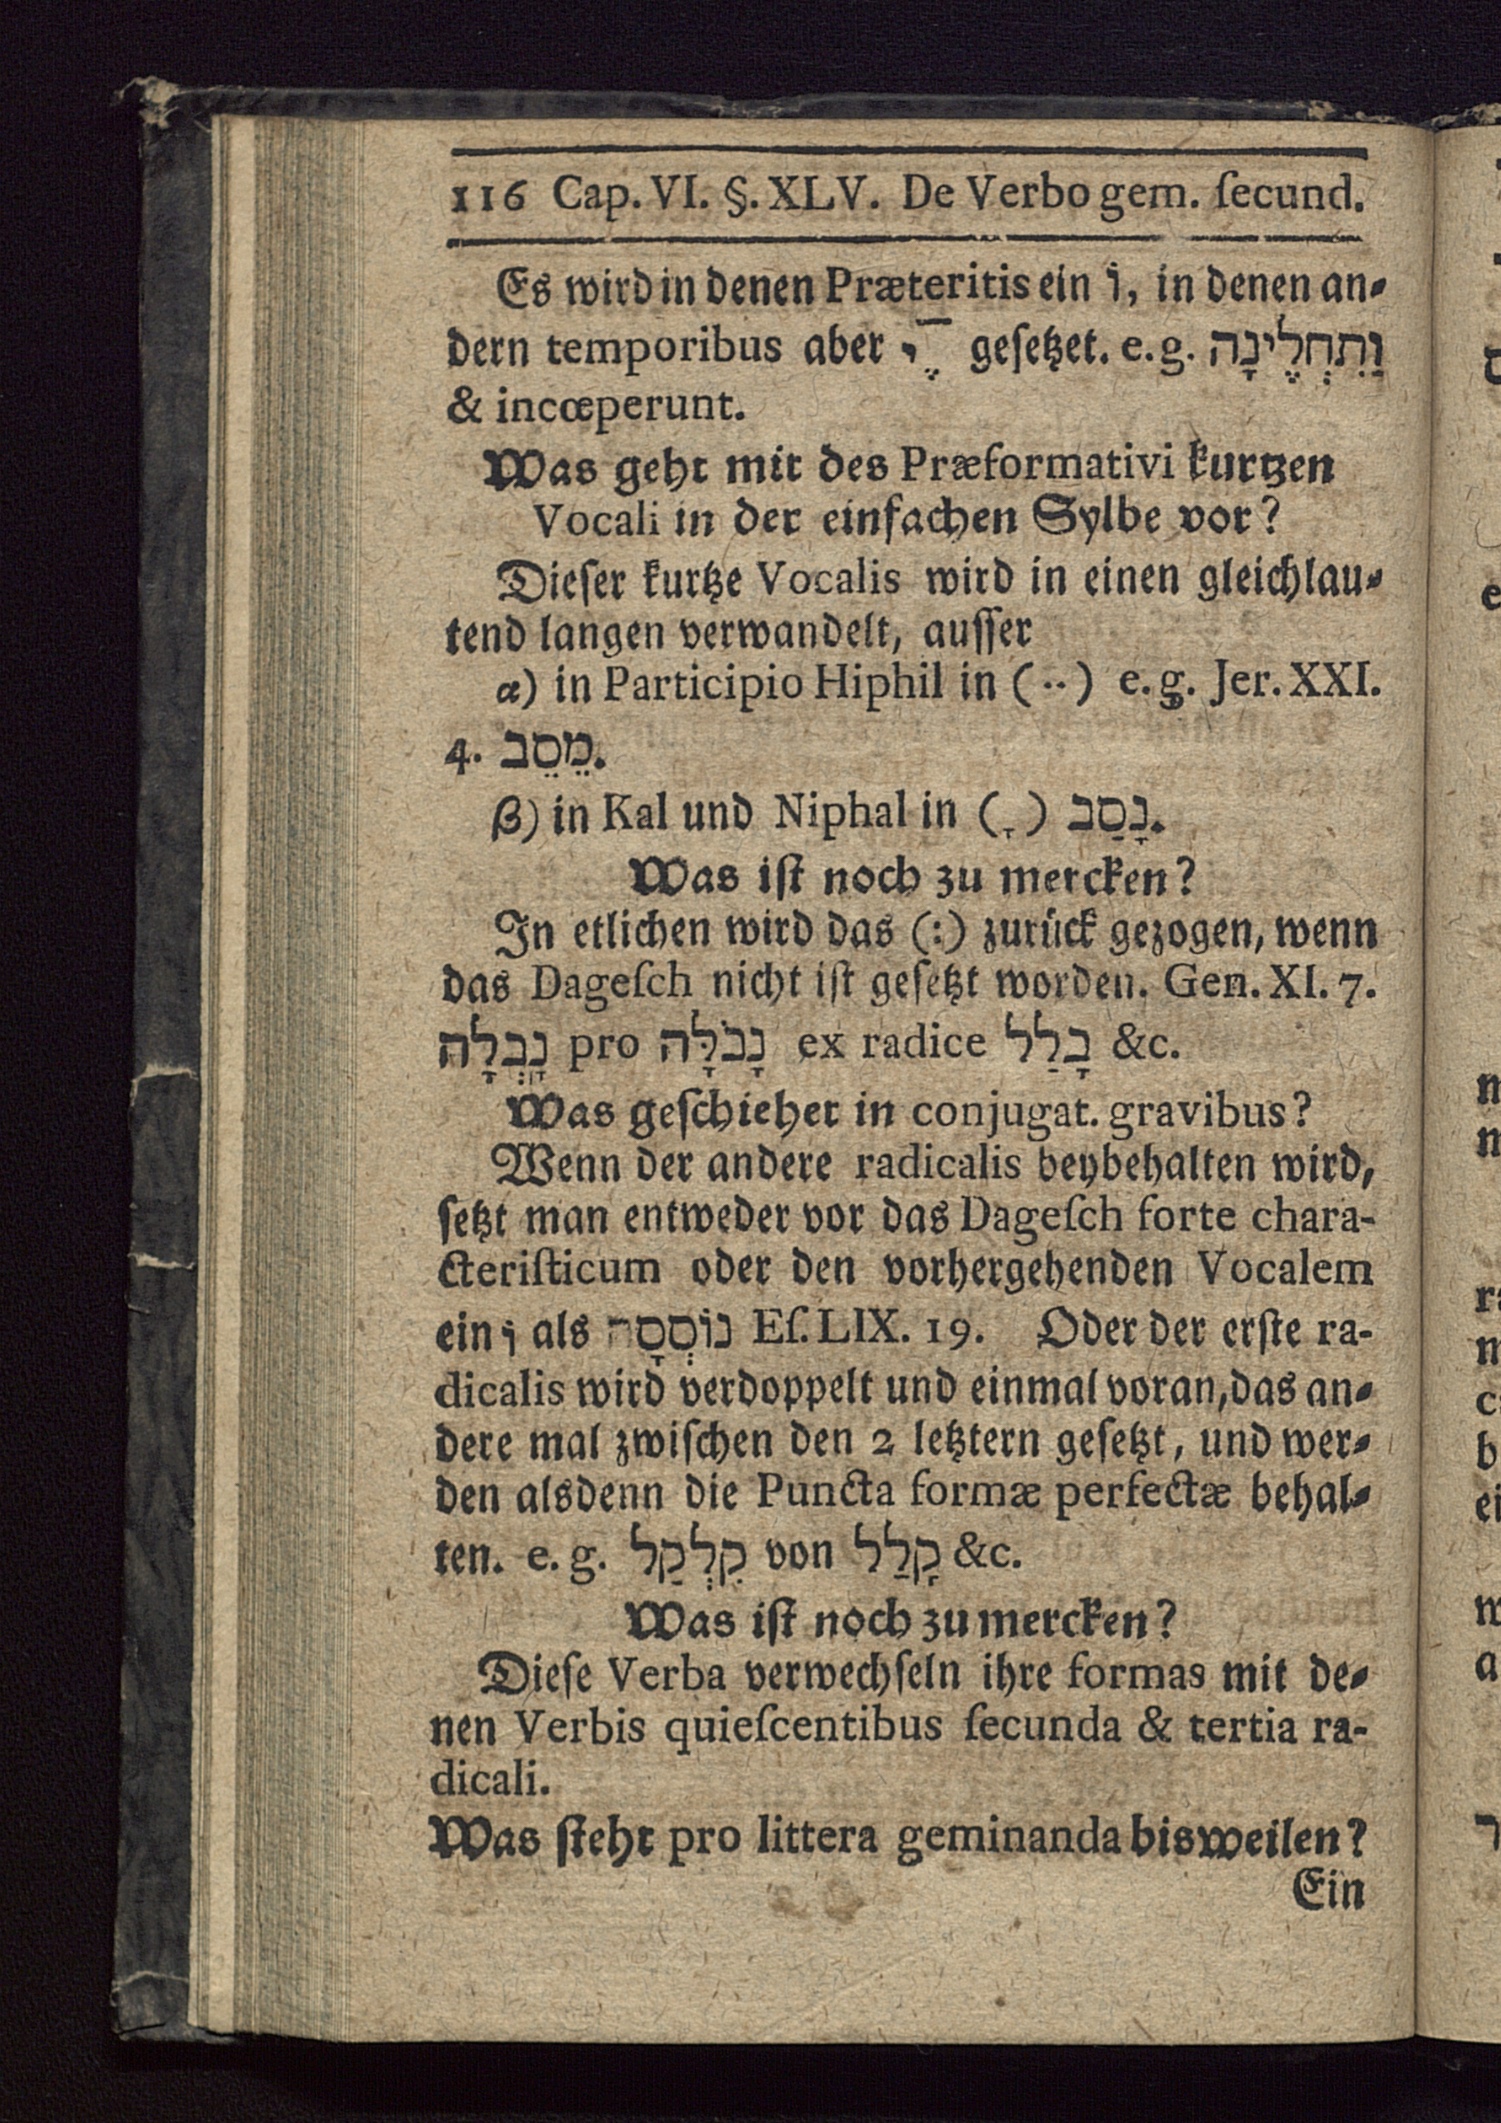 116 Cap. VI. §. XLV. De Verbo gem. ſecund.
Es wird in denen Præteritis ein וֹ, in denen an⸗
dern temporibus aber יֶ־ geſetzet. e. g. וַתִּחְלֶינָה
& incœperunt.
Was geht mit des Præformativi kurtzen
Vocali in der einfachen Sylbe vor?
Dieſer kurtze Vocalis wird in einen gleichlau⸗
tend langen verwandelt, auſſer
α) in Participio Hiphil in (··) e. g. Jer. XXI.
4. מֵסֵב.
β) in Kal und Niphal in (ָ) נָסַב.
Was iſt noch zu mercken?
In etlichen wird das (:) zurück gezogen, wenn
das Dageſch nicht iſt geſetzt worden. Gen. XI. 7.
נָבְלָה pro נָבֹלָּה ex radice בָלַל &c.
Was geſchiehet in conjugat. gravibus?
Wenn der andere radicalis beybehalten wird,
ſetzt man entweder vor das Dageſch forte chara-
cteriſticum oder den vorhergehenden Vocalem
ein ו als נוֹסְסָה Eſ. LIX. 19. Oder der erſte ra-
dicalis wird verdoppelt und einmal voran, das an⸗
dere mal zwiſchen den 2 letztern geſetzt, und wer⸗
den alsdenn die Puncta formæ perfectæ behal⸗
ten. e. g. קִלְקַל von קָלַל &c.
Was iſt noch zu mercken?
Dieſe Verba verwechſeln ihre formas mit de⸗
nen Verbis quieſcentibus ſecunda & tertia ra-
dicali.
Was ſteht pro littera geminanda bisweilen?
Ein